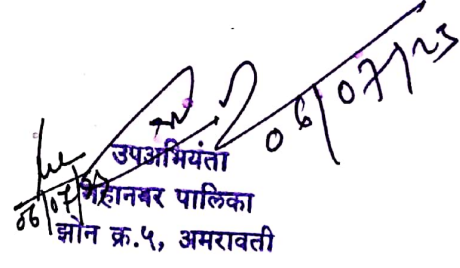 06/07/23
उपअभियंता
महानगर पालिका
झोन क्र.५, अमरावती
06/07/23